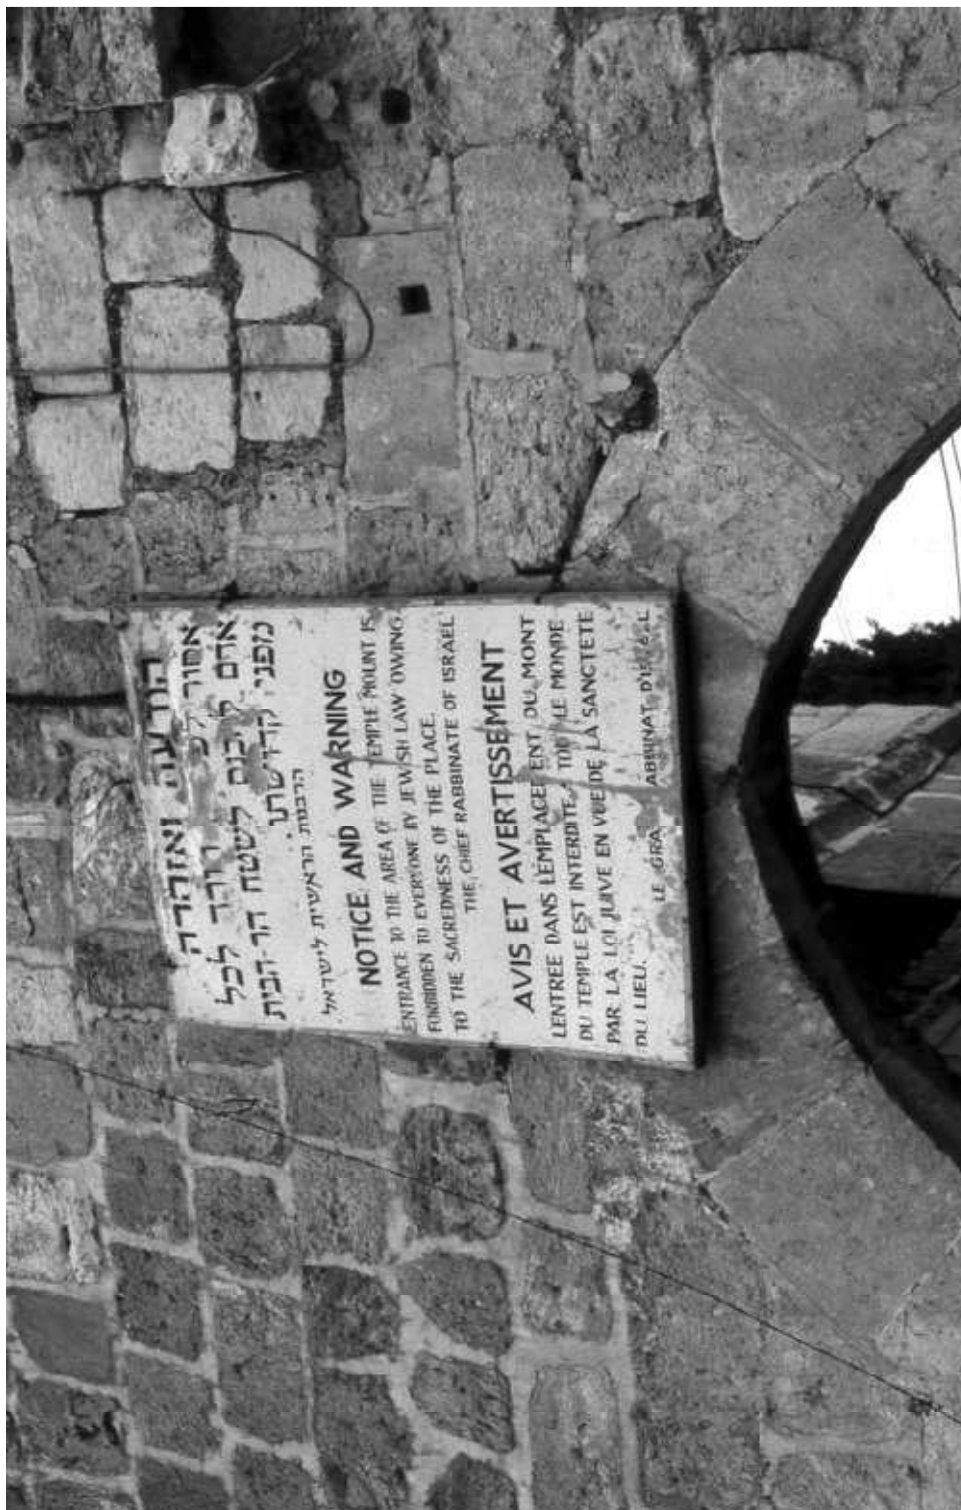 הודעה ואזהרה
אסור לכל
אדם ליכנס לשטח הר-הבית
מפני קדושתו.
הרבנות הראשית לישראל
NOTICE AND WARNING
ENTRANCE TO THE AREA OF THE TEMPLE MOUNT IS
FORBIDDEN TO EVERYONE BY JEWISH LAW OWING
TO THE SACREDNESS OF THE PLACE.
THE CHIEF RABBINATE OF ISRAEL
AVIS ET AVERTISSEMENT
L'ENTREE DANS L'EMPLACEMENT DU MONT
DU TEMPLE EST INTERDITE A TOUT LE MONDE
PAR LA LOI JUIVE EN VUE DE LA SANCTETE
DU LIEU.
LE GRA ABBINAT D'IS